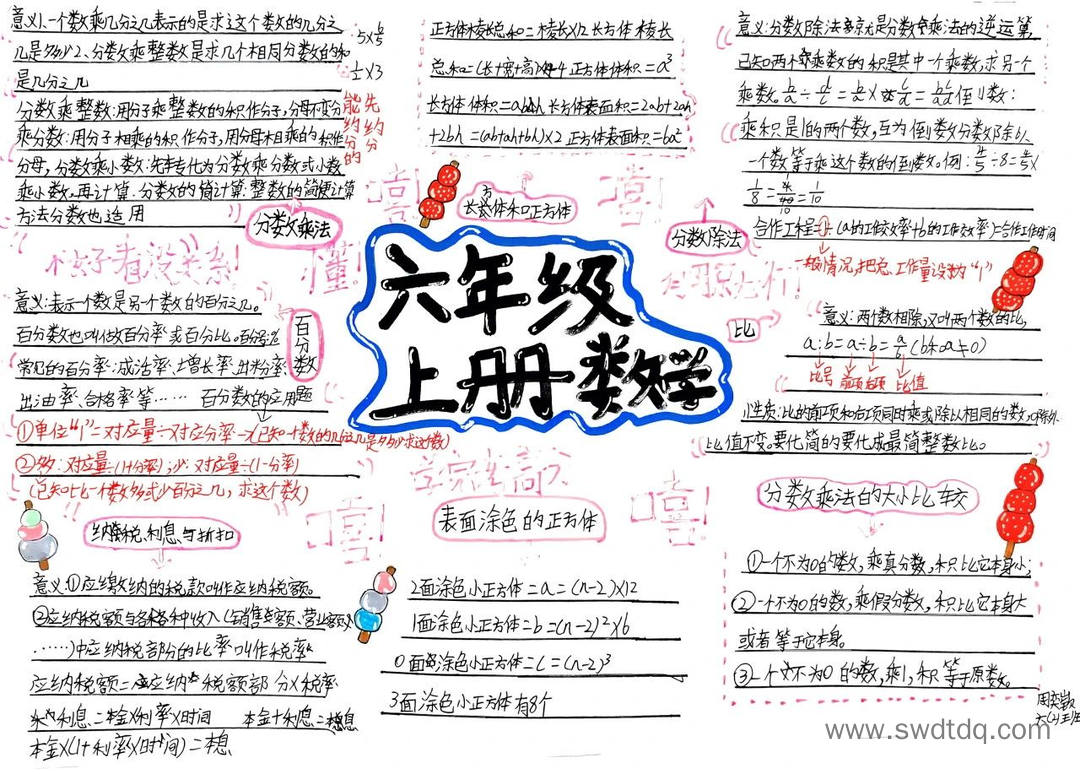 意义:一个数乘几分之几表示的是求这个数的几分之
几是多少 2、分数乘整数是求几个相同分数的和
是几分之几
5×
×3
分数乘整数:用分子乘整数的积作分子,分母不变分
乘分数:用分子相乘的积作分子,用分母相乘的积作
分母,分数乘小数:先转化为分数乘分数或小数
乘小数,再计算.分数的简计算:整数的简便计算
方法分数也适用
能约分的
先约分
分数乘法
正方体棱长总和=棱长×12 长方体棱长
总和=(长+宽+高)×4 正方体体积=a³
长方体体积=abh 长方体表面积=2ab+2ah
+2bh=(ab+ah+bh)×2 正方体表面积=6a²
长方体和正方体
意义:分数除法就是分数乘法的逆运算,
已知两个乘数的积是其中一个乘数,求另一个
乘数。倒数:
乘积是1的两个数,互为倒数分数除以
一个数等于乘这个数的倒数。例:
合作工程=1÷(a的工作效率+b的工作效率)=合作工作时间
一般情况,把总工作量设为“1”
分数除法
嘻!
嘻!
懂!
六年级
上册数学
比
意义:两个数相除,又叫两个数的比,
a:b=a÷b=a/b(b≠0)
比号 前项 后项 比值
性质:比的前项和后项同时乘或除以相同的数,0除外
比值不变。要化简的要化成最简整数比。
意义:表示一个数是另一个数的百分之几。
百分数也叫做百分率或百分比。百分号:%
常见的百分率:成活率、增长率、出粉率
出油率、合格率等…… 百分数的应用题
百分数
①单位“1”=对应量÷对应分率
②多:对应量÷(1+分率);少:对应量÷(1-分率)
(已知比一个数多或少百分之几,求这个数)
纳税,利息与折扣
意义:①应缴纳的税款叫作应纳税额。
②应纳税额与各种收入(销售额、营业额
……)中应纳税部分的比率叫作税率
应纳税额=应纳税额部分×税率
利息=本金×利率×时间 本金+利息=本息
本金×(1+利率×时间)=本息
嘻!
嘻!
表面涂色的正方体
2面涂色小正方体=a=(n-2)×12
1面涂色小正方体=b=(n-2)²×6
0面涂色小正方体=c=(n-2)³
3面涂色小正方体有8个
分数乘法的大小比较
①一个不为0的数,乘真分数,积比它本身小;
②一个不为0的数,乘假分数,积比它本身大
或者等于它本身。
③一个不为0的数,乘1,积等于原数。
www.swdtdq.com